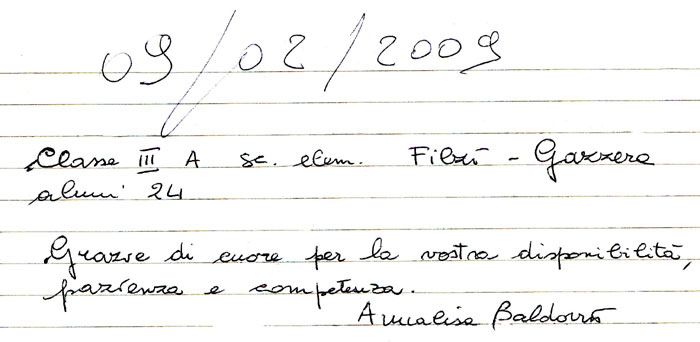 09/02/2009
Classe III A sc. elem. Filzi - Gazzera
alunni 24
Grazie di cuore per la vostra disponibilità,
pazienza e competenza.
Annalisa